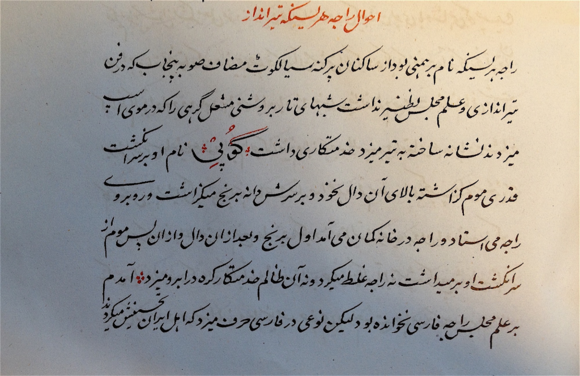 احوال راجه هر لسینکه تیرانداز
راجه هر لسینکه نام برهمنی بود از ساکنان پرکنه سیالکوت مضاف صوبه پنجاب که در فن
تیراندازی و علم مجلس نظیر نداشت شبهای تار بروشنی مشعل کرهی را که در موی اسپ
میزدند نشانه ساخته به تیر میزد خدمتکاری داشت گوپی نام او بر سر انکشت
قدری موم کزاشته بالای آن دال نخود و بر سرش دانه برنج میکزاشت و روبروی
راجه می استاد و راجه در خانه کمان می آمد اول برنج و بعد ازان دال و ازان پس موم از
سر انکشت او بر میداشت نه راجه غلط میکرد و نه آن ظالم خدمتکار کره در ابرو میزد آمدم
بر علم مجلس راجه فارسی نخوانده بود لیکن نوعی در فارسی حرف میزد که اهل ایران تحسینش میکردند